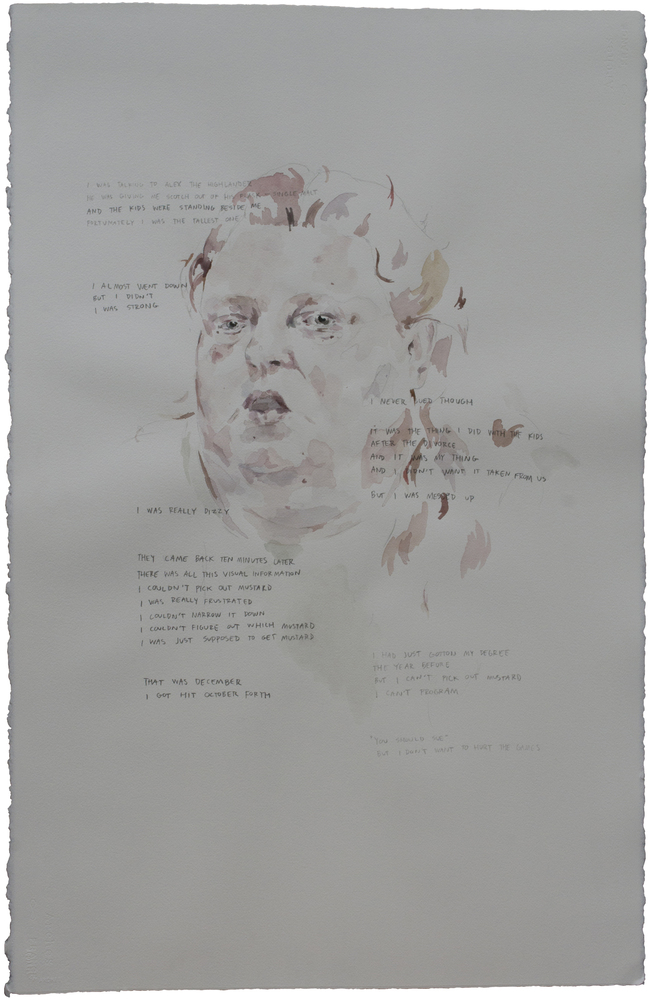 I WAS TALKING TO ALEX THE HIGHLANDER
HE WAS OUT OF HIS SINGLE MALT
AND THE KIDS WERE STANDING BESIDE ME
FORTUNATELY I WAS THE TALLEST ONE
I ALMOST WENT DOWN
BUT I DIDN'T
I WAS STRONG
I NEVER SUED THOUGH
IT WAS THE THING I DID WITH THE KIDS
AFTER THE DIVORCE
AND IT WAS MY THING
AND I DIDN'T WANT IT TAKEN FROM US
BUT I WAS MESSED UP
I WAS REALLY DIZZY
THEY CAME BACK TEN MINUTES LATER
THERE WAS ALL THIS VISUAL INFORMATION
I COULDN'T PICK OUT MUSTARD
I WAS REALLY FRUSTRATED
I COULDN'T NARROW IT DOWN
I COULDN'T FIGURE OUT WHICH MUSTARD
I WAS JUST SUPPOSED TO GET MUSTARD
THAT WAS DECEMBER
I GOT HIT OCTOBER FORTH
I HAD JUST GOTTON MY DEGREE
THE YEAR BEFORE
BUT I CAN'T PICK OUT MUSTARD
I CAN'T PROGRAM
"YOU SHOULD SUE"
BUT I DON'T WANT TO HURT THE